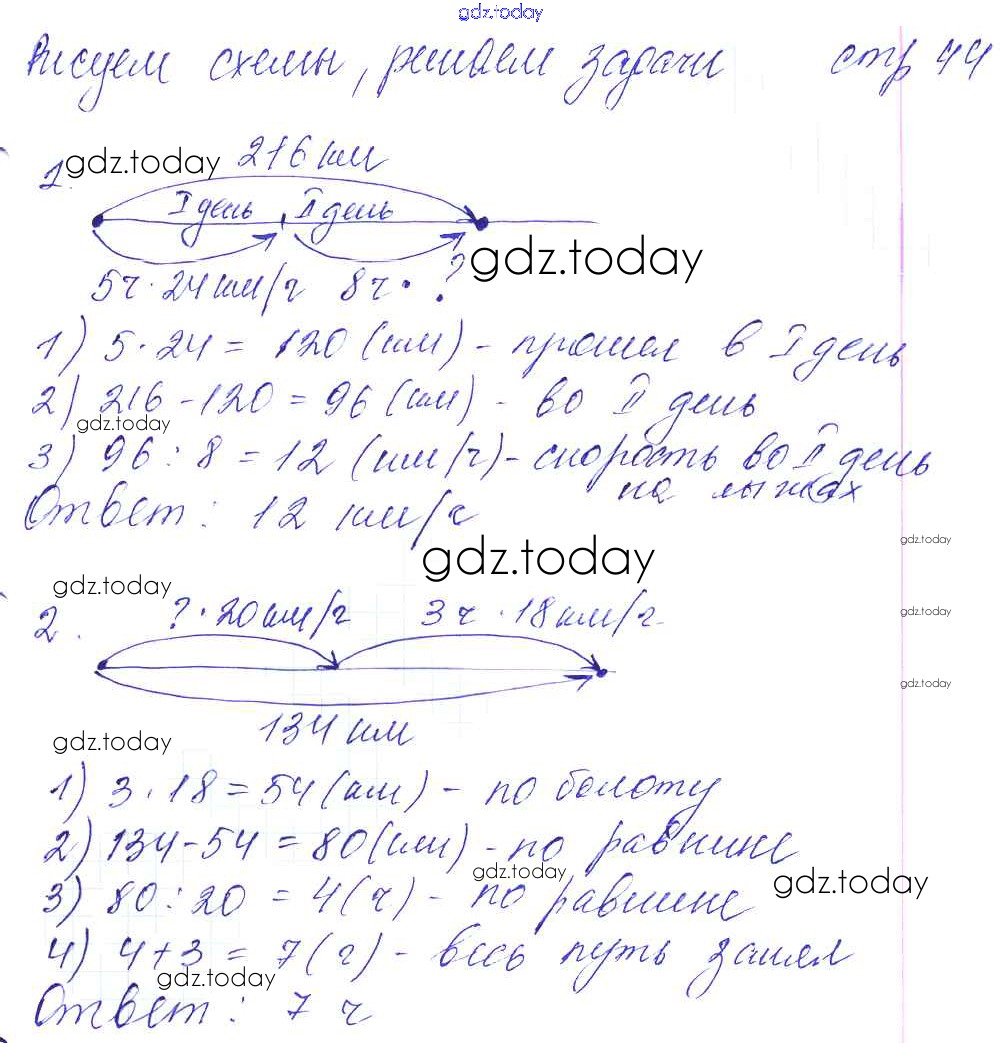 gdz.today
Рисуем схемы, решаем задачи стр 44
1. gdz.today 216 км
I день II день
gdz.today
5ч · 24 км/ч 8ч · ?
1) 5 · 24 = 120 (км) - прошел в I день
2) 216 - 120 = 96 (км) - во II день
gdz.today
3) 96 : 8 = 12 (км/ч) - скорость во II день
на лыжах
Ответ: 12 км/ч
gdz.today
gdz.today
gdz.today
2. ? · 20 км/ч 3 ч · 18 км/ч
gdz.today
gdz.today
134 км
gdz.today
1) 3 · 18 = 54 (км) - по болоту
2) 134 - 54 = 80 (км) - по равнине
gdz.today
gdz.today
3) 80 : 20 = 4 (ч) - по равнине
4) 4 + 3 = 7 (ч) - весь путь занял
gdz.today
Ответ: 7 ч